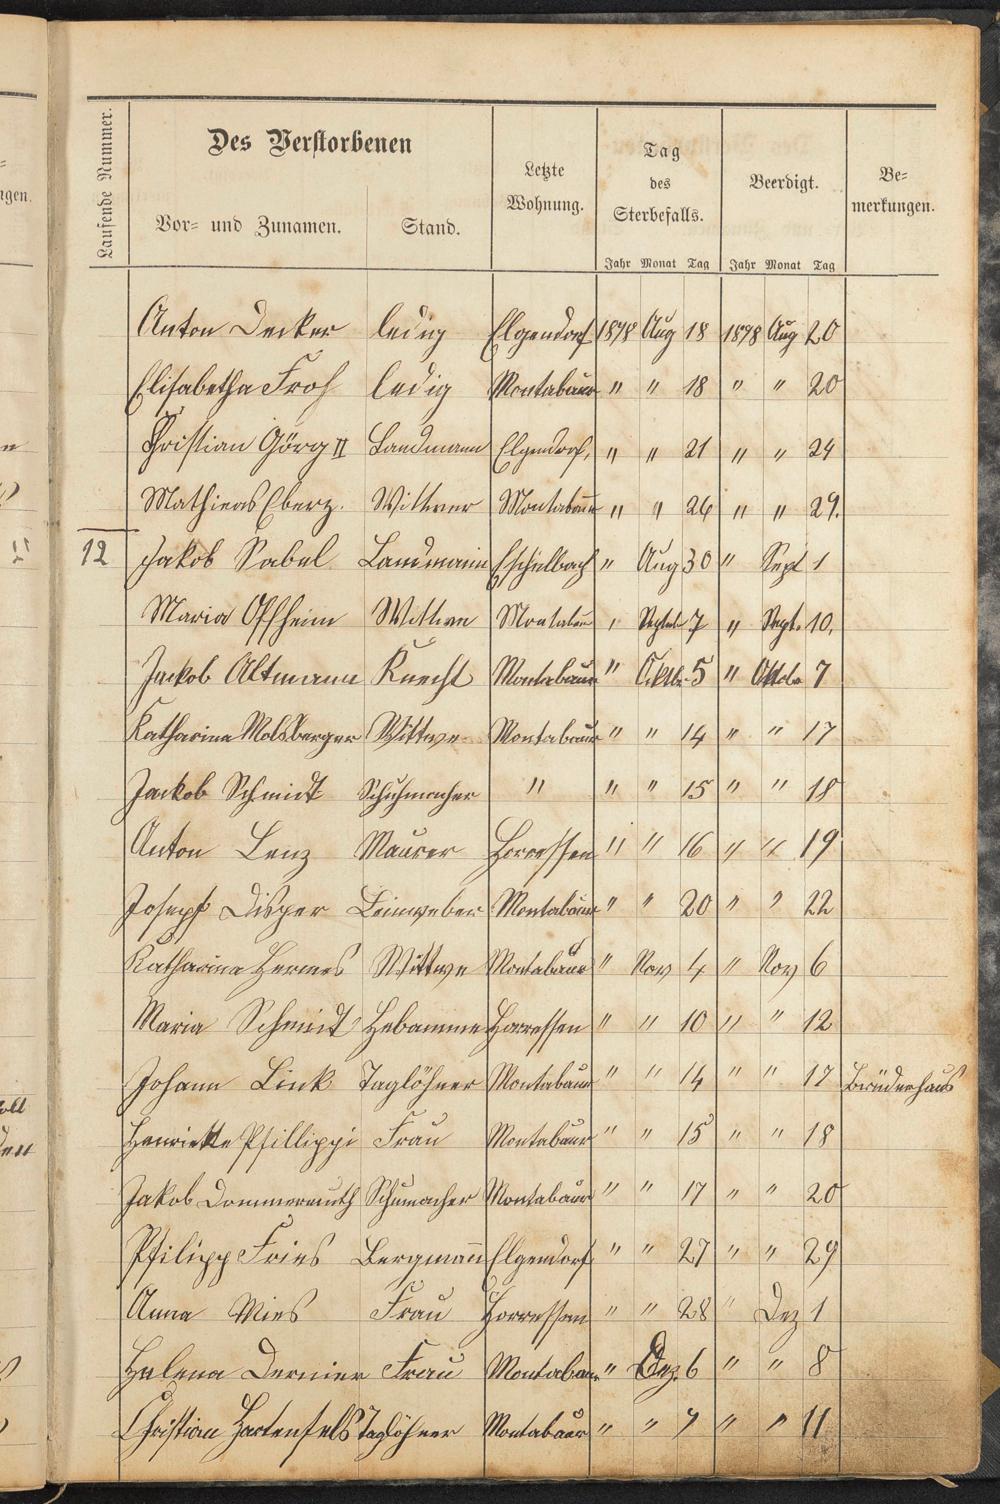 Laufende Nummer.
Des Verstorbenen
Vor= und Zunamen.
Stand.
Letzte
Wohnung.
Tag
des
Sterbefalls.
Beerdigt.
Be=
merkungen.
Jahr Monat Tag Jahr Monat Tag
Anton Decker ledig Elgendorf 1898 Aug 18 1898 Aug 20
Elisabetha Froh ledig Montabaur " " 18 " " 20
Christian Görg II Landmann Elgendorf, " " 21 " " 24
Mathieas Eberz. Wittwer Montabaur " " 26 " " 29.
12 Jakob Sabel Landmann Eschelbach " Aug 30 " Sept 1
Maria Offheim Wittwe Montabau " Septbr 7 " Sept. 10.
Jackob Altmann Knecht Montabaur " Oktb. 5 " Oktob 7
Katharina Molsberger Wittwe Montabaur " " 14 " " 17
Jackob Schmidt Schuhmacher " " " 15 " " 18
Anton Lenz Maurer Horressen " " 16 " " 19
Joseph Disper Leinweber Montabaur " " 20 " " 22
Katharina Hermes Wittwe Montabaur " Nov 4 " Nov 6
Maria Schmidt Hebamme Horressen " " 10 " " 12
Johann Link Taglöhner Montabaur " " 14 " " 17 Brüderhaus
Henriette Phillippi Frau Montabaur " " 15 " " 18
Jakob Dommermuth Schumacher Montabaur " " 17 " " 20
Philipp Fries Bergmann Elgendorf " " 27 " " 29
Anna Mies Frau Horressen " " 28 " Dez 1
Helena Dernier Frau Montabaur " Dez. 6 " " 8
Christian Hartenfels Taglöhner Montabaur " " 9 " " 11